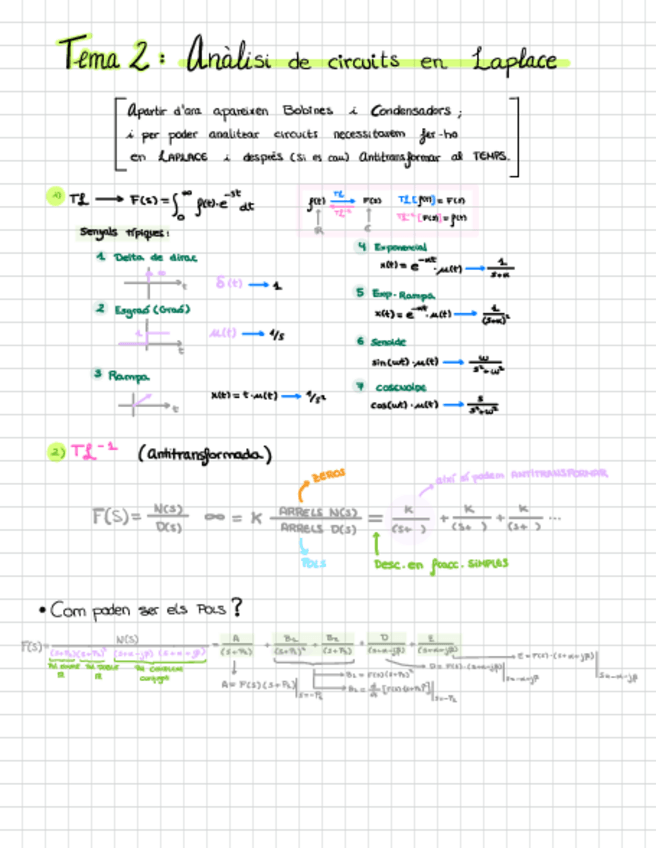 Tema 2: Anàlisi de circuits en Laplace
Apartir d'ara apareixen Bobines i Condensadors;
i per poder analitzar circuits necessitarem fer-ho
en LAPLACE i després (si es cau) Antitransformar al TEMPS.
1) TL → F(s) = ∫₀^∞ f(t)·e^-st dt
f(t) TL F(s) TL[f(t)] = F(s)
TL⁻¹ TL⁻¹[F(s)] = f(t)
R C
Senyals típiques:
1 Delta de dirac
t δ(t) → 1
2 Esgraó (Graó)
1 t μ(t) → 1/s
3 Rampa
t x(t) = t·μ(t) → 1/s²
4 Exponencial
x(t) = e^-αt·μ(t) → 1/(s+α)
5 Exp-Rampa
x(t) = e^-αt·μ(t) → 1/(s+α)²
6 Senoide
sin(ωt)·μ(t) → ω/(s²+ω²)
7 cosenoide
cos(ωt)·μ(t) → s/(s²+ω²)
2) TL⁻¹ (Antitransformada)
ZEROS
així sí podem ANTITRANSFORMAR
F(S) = N(S)/D(S) ∞ = K ARRELS N(S)/ARRELS D(S) = K/(S+ ) + K/(S+ ) + K/(S+ ) ...
POLS
Desc. en fracc. SIMPLES
• Com poden ser els POLS?
F(S) = N(S)/(S+P₁)(S+P₂)²(S+α-jβ)(S+α+jβ) = A/(S+P₁) + B₁/(S+P₂)² + B₂/(S+P₂) + D/(S+α-jβ) + E/(S+α+jβ)
conjugat
A = F(S)(S+P₁)|s=-P₁
B₁ = F(S)(S+P₂)²
B₂ = d/ds [F(S)·(S+P₂)²]|s=-P₂
D = F(S)·(S+α-jβ)|s=-α+jβ
E = F(S)·(S+α+jβ)|s=-α-jβ